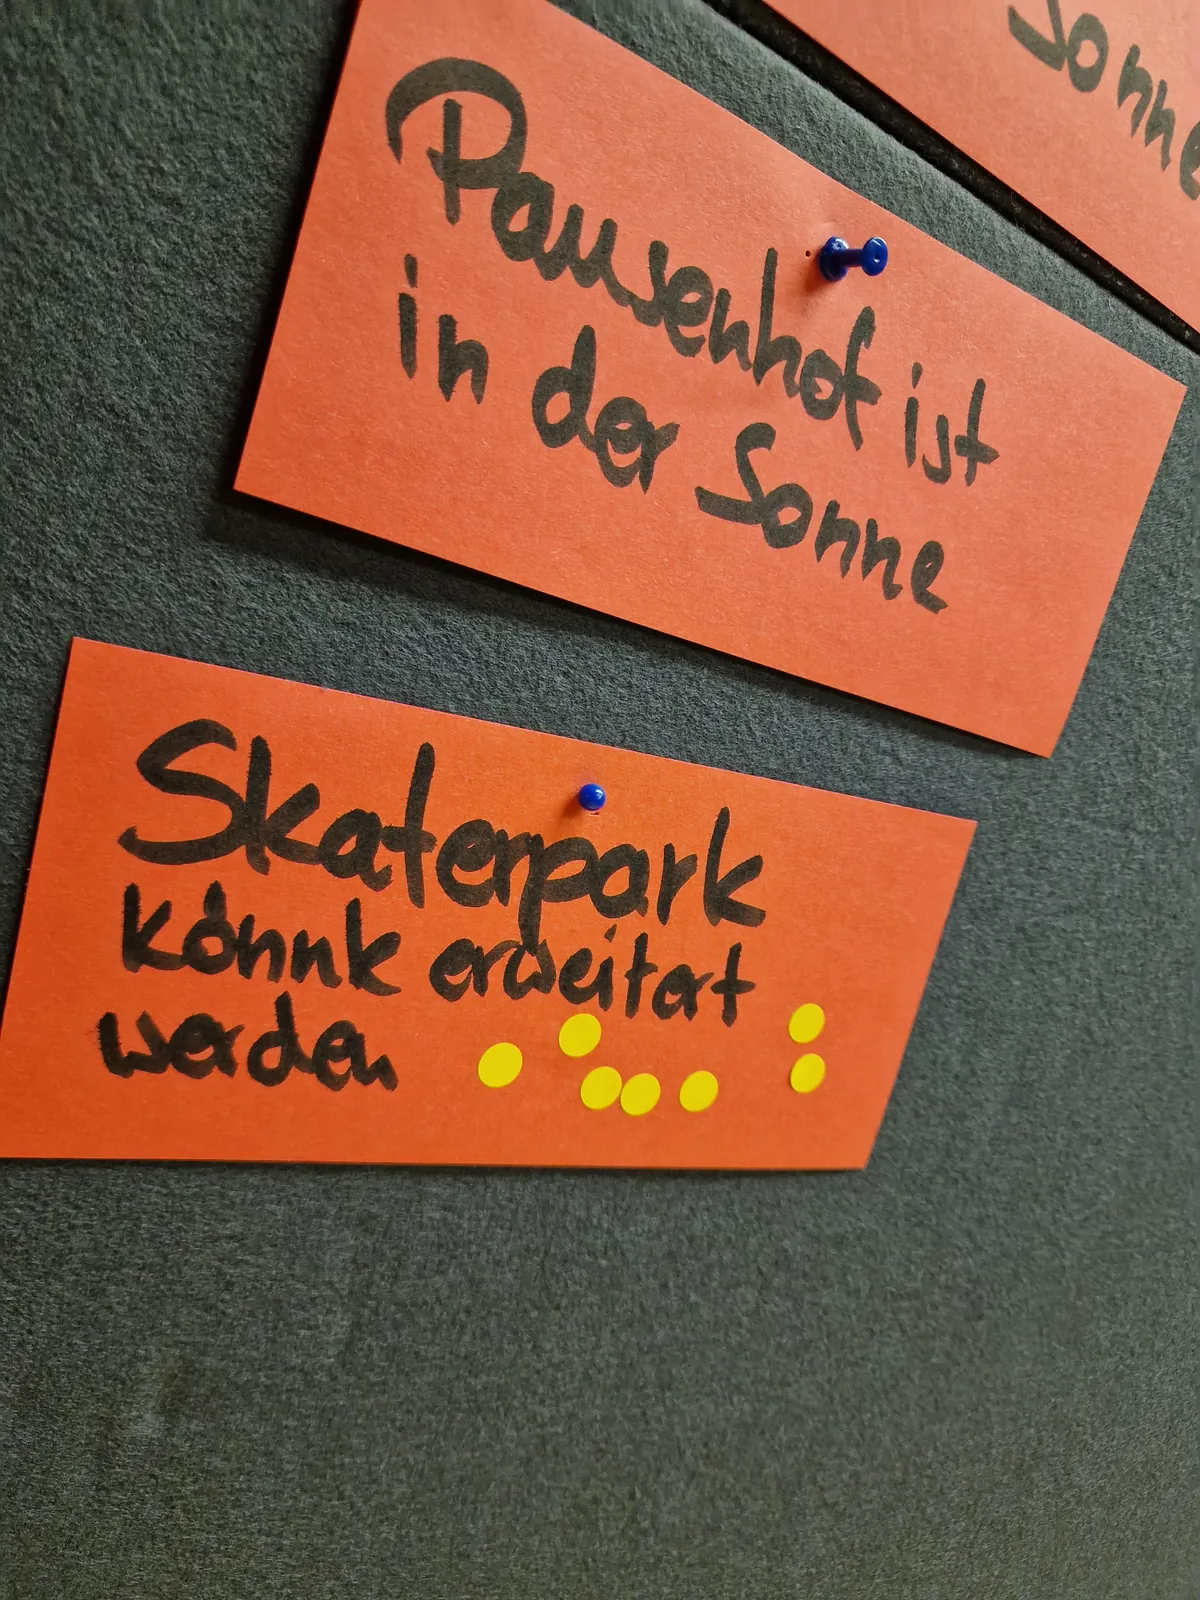 Sonne
Pausenhof ist
in der Sonne
Skaterpark
könnte erweitert
werden